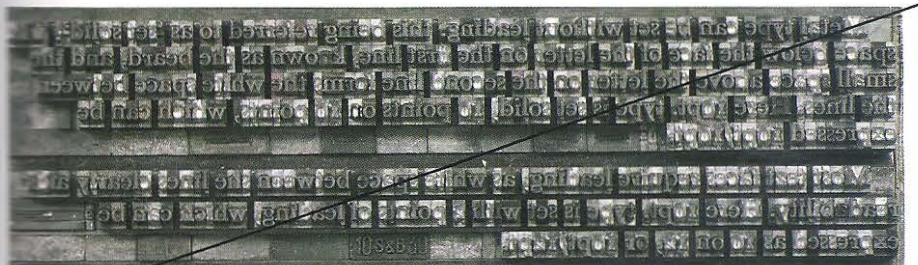 Metal type can be set without leading, this being referred to as set solid.
space below the face of the letter on the first line, known as the beard, and the
small space above the letter on the second line forms the white space between
the lines. Here 10pt type is set solid, 10 points on 10 points, which can be
expressed 10/10pt
Most require leading, as white space between the lines clearly
readability. Here 10pt type is set with points of leading, which can be
expressed as 10 on or 10pt